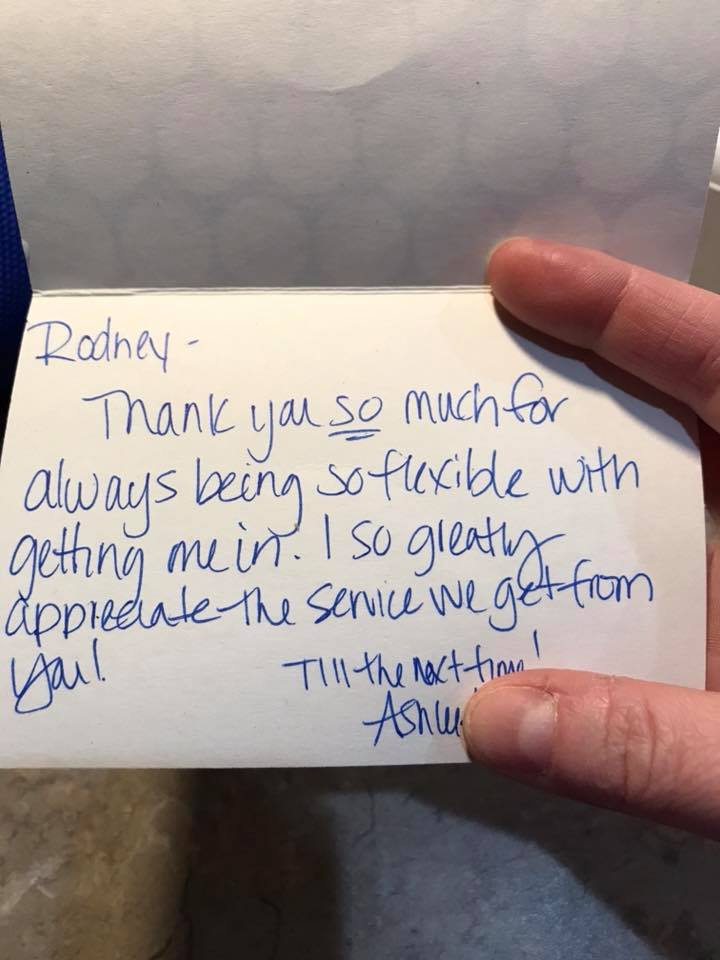 Rodney -
Thank you so much for
always being so flexible with
getting me in. I so greatly
appreciate the service we get from
you!
Till the next time!